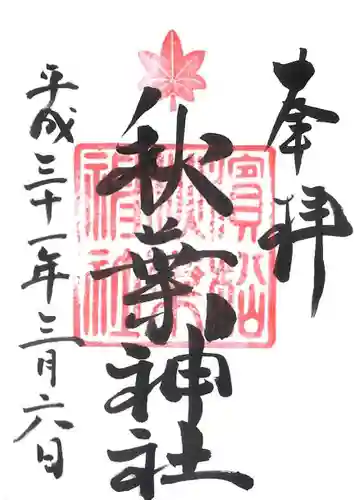 奉拝
秋葉神社
平成三十一年三月六日